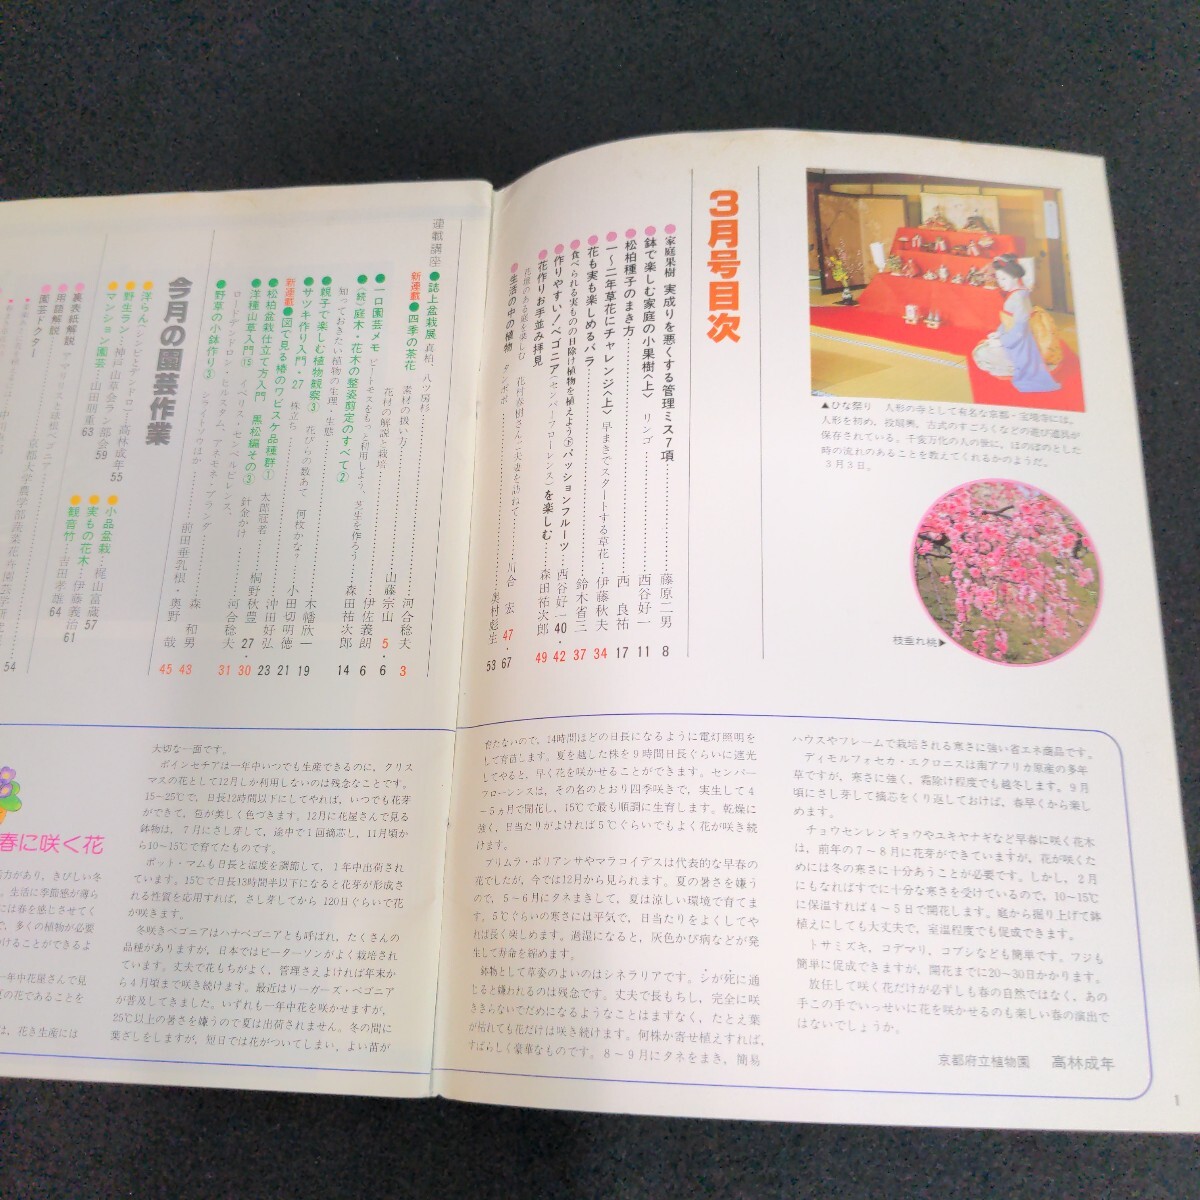 3月号目次
●家庭果樹 実成りを悪くする管理ミス7項……藤原二男 8
●鉢で楽しむ家庭の小果樹〈上〉 リンゴ……西谷好一 11
●松柏種子のまき方……西 良祐 17
●一〜二年草花にチャレンジ〈上〉 早まきでスタートする草花……伊藤秋夫 34
●花も実も楽しめるバラ……鈴木省三 37
●食べられる実ものの日除け植物を植えよう㊦パッションフルーツ……西谷好一 40・42
●作りやすい!ベゴニア(センパーフローレンス)を楽しむ……森田祐次郎 49
●花作りお手並み拝見
花壇のある庭を楽しむ 花村春樹さんご夫妻を訪ねて……川合 宏 47・67
●生活の中の植物 タンポポ……奥村彪生 53
連載講座
●誌上盆栽展 真柏、八ツ房杉……河合稔夫 3
新連載●四季の茶花 素材の扱い方……
花材の解説と栽培……山藤宗山 5・6
●一口園芸メモ ピートモスをもっと利用しよう、芝生を作ろう……伊佐義朗 6
●続)庭木・花木の整姿剪定のすべて②
知っておきたい植物の生理・生態……森田祐次郎 14
●親子で楽しむ植物観察③ 花びらの数あて 何枚かな?……木幡欣一 19
●サツキ作り入門・27 株立ち……小田切明徳 21
新連載●図で見る椿のワビスケ品種群① 太郎冠者……沖田好弘 23
●松柏盆栽仕立て方入門 黒松編その③ 針金かけ……桐野秋豊 27・
●洋種山草入門15 イベリス、センペルビレンス、
ロードデンドロン・ヒルスタム、アネモネ・ブランダ……河合稔夫 30
●野草の小鉢作り③ ショイジョウほか……前田亜乳根・奥野 哉 31
今月の園芸作業
森 和男 43
45
●洋らん(シンビとデンドロ)…高林成年 55
●野生ラン…神戸山草会ラン部会 59
●マンション園芸…山田則重 63
●小品盆栽…梶山富蔵 57
●実もの花木…伊藤義治 61
●観音竹…吉田孝雄 64
●裏表紙解説
●用語解説 アマリリスと球根ベゴニア
●園芸ドクター……京都大学農学部蔬菜花卉園芸学研究
54
▲ひな祭り 人形の寺として有名な京都・宝鏡寺には、
人形を初め、投扇興、古式のすごろくなどの遊び道具が
保存されている。千変万化の人の世に、ほのぼのとした
時の流れのあることを教えてくれるかのようだ。
3月3日。
枝垂れ桃▶
春に咲く花
活力があり、きびしい冬
、生活に季節感が薄ら
には春を感じさせてく
で、多くの植物が必要
つけることができるよ
一年中花屋さんで見
夏の花であることを
は、花き生産には
大切な一面です。
ポインセチアは一年中いつでも生産できるのに、クリス
マスの花として12月しか利用しないのは残念なことです。
15〜25℃で、日長12時間以下にしてやれば、いつでも花芽
ができて、苞が美しく色づきます。12月に花屋さんで見る
鉢物は、7月にさし芽して、途中で1回摘芯し、11月頃か
ら10〜15℃で育てたものです。
ポット・マムも日長と温度を調節して、1年中出荷され
ています。15℃で日長13時間半以下になると花芽が形成さ
れる性質を応用すれば、さし芽してから120日ぐらいで花
が咲きます。
冬咲きベゴニアはハナベゴニアとも呼ばれ、たくさんの
品種がありますが、日本ではピーターソンがよく栽培され
ています。丈夫で花もちがよく、管理さえよければ年末か
ら4月頃まで咲き続けます。最近はリーガース・ベゴニア
が普及してきました。いずれも一年中花を咲かせますが、
25℃以上の暑さを嫌うので夏は出荷されません。冬の間に
葉ざしをしますが、短日では花がついてしまい、よい苗が
育たないので、14時間ほどの日長になるように電灯照明を
して育苗します。夏を越した株を9時間日長ぐらいに遮光
してやると、早く花を咲かせることができます。センパー
フローレンスは、その名のとおり四季咲きで、実生して4
〜5ヵ月で開花し、15℃で最も順調に生育します。乾燥に
強く、日当たりがよければ5℃ぐらいでもよく花が咲き続
けます。
プリムラ・ポリアンサやマラコイデスは代表的な早春の
花でしたが、今では12月から見られます。夏の暑さを嫌う
ので、5〜6月にタネまきして、夏は涼しい環境で育てま
す。5℃ぐらいの寒さには平気で、日当たりをよくしてや
れば長く楽しめます。過湿になると、灰色かび病などが発
生して寿命を縮めます。
鉢物として草姿のよいのはシネラリアです。シが死に通
じると嫌われるのは残念です。丈夫で長もちし、完全に咲
ききらないでだめになるようなことはまずなく、たとえ葉
が枯れても花だけは咲き続けます。何株か寄せ植えすれば、
すばらしく豪華なものです。8〜9月にタネをまき、簡易
ハウスやフレームで栽培される寒さに強い省エネ商品です。
ディモルフォセカ・エクロニスは南アフリカ原産の多年
草ですが、寒さに強く、霜除け程度でも越冬します。9月
頃にさし芽して摘芯をくり返しておけば、春早くから楽し
めます。
チョウセンレンギョウやユキヤナギなど早春に咲く花木
は、前年の7〜8月に花芽ができていますが、花が咲くた
めには冬の寒さに十分あうことが必要です。しかし、2月
にもなればすでに十分な寒さを受けているので、10〜15℃
に保温すれば4〜5日で開花します。庭から掘り上げて鉢
植えにしても大丈夫で、室温程度でも促成できます。
トサミズキ、コデマリ、コブシなども簡単です。フジも
簡単に促成できますが、開花までに20〜30日かかります。
放任して咲く花だけが必ずしも春の自然ではなく、あの
手この手でいっせいに花を咲かせるのも楽しい春の演出で
はないでしょうか。
京都府立植物園 高林成年
1